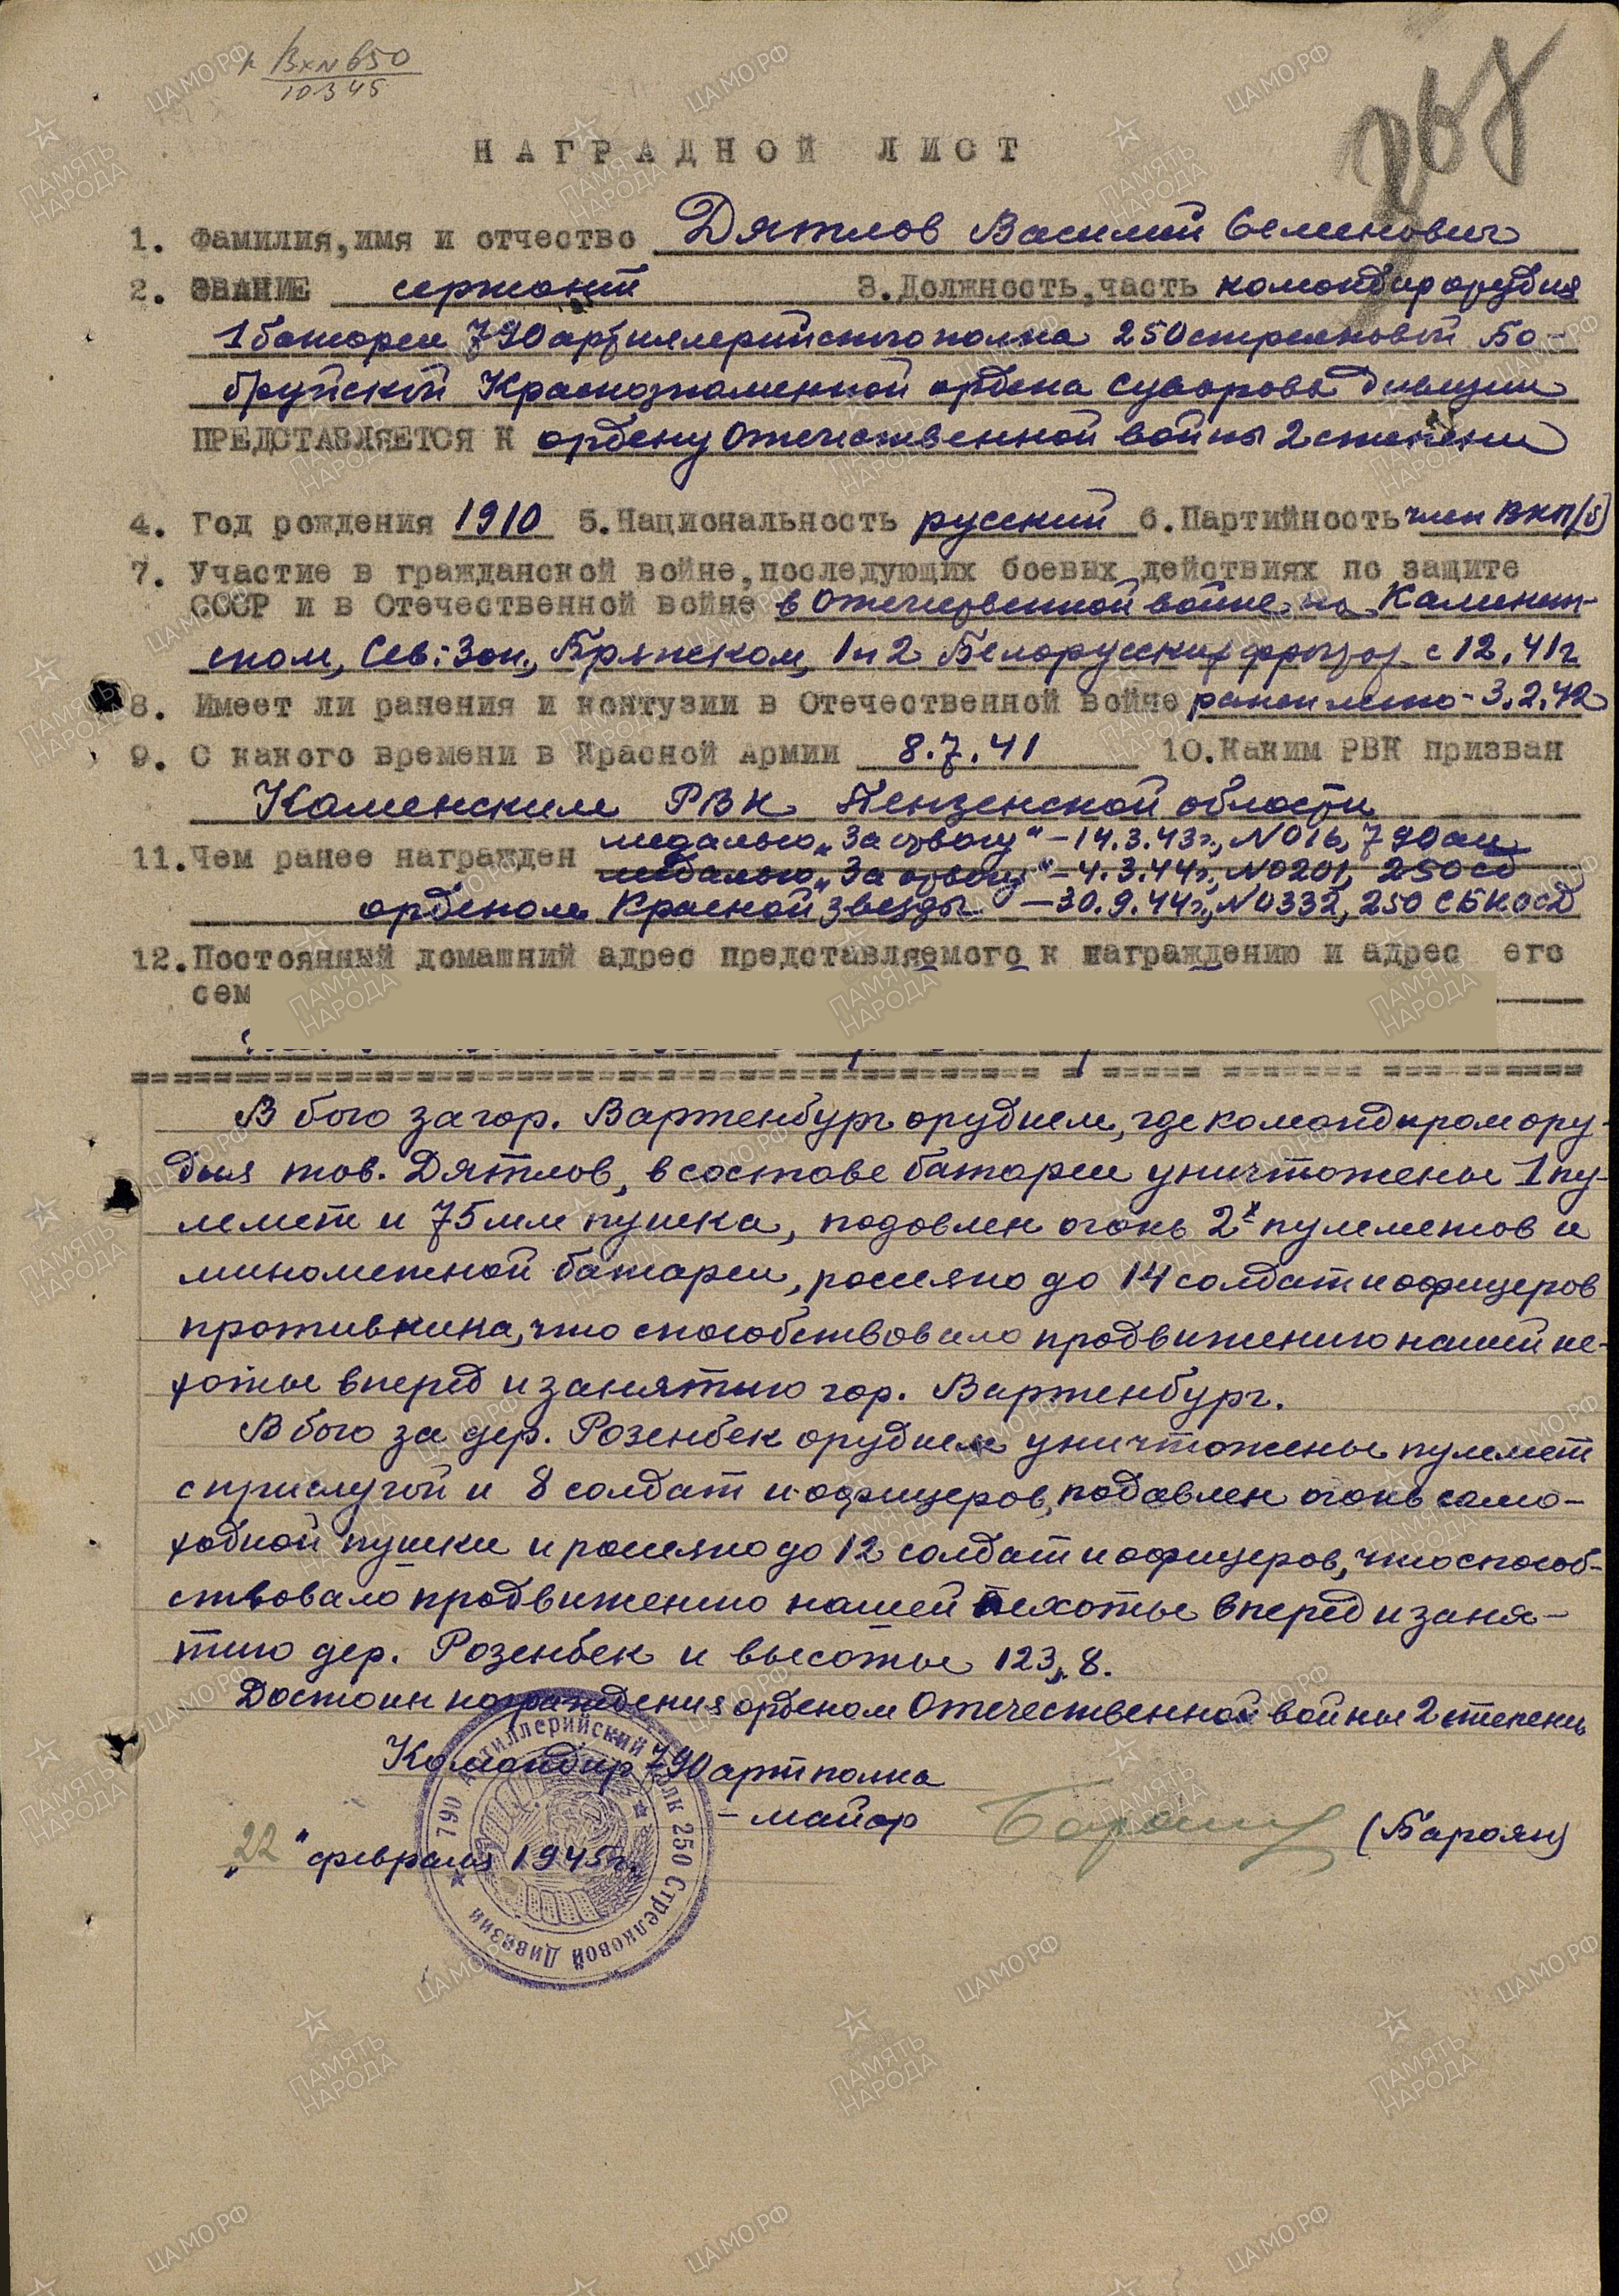 Вх N 650
10 3 45
НАГРАДНОЙ ЛИСТ
1. Фамилия, имя и отчество Дятлов Василий Семенович
2. ЗВАНИЕ сержант 3. Должность, часть командир орудия
1 батареи 790 артиллерийского полка 250 стрелковой Бо-
бруйской Краснознаменной ордена Суворова дивизии
ПРЕДСТАВЛЯЕТСЯ К ордену Отечественной войны 2 степени
4. Год рождения 1910 5. Национальность русский 6. Партийность член ВКП/б/
7. Участие в гражданской войне, последующих боевых действиях по защите
СССР и в Отечественной войне в Отечественной войне на Калинин-
ском, Сев-Зап., Брянском, 1 и 2 Белорусских фронтах с 12.41 г
8. Имеет ли ранения и контузии в Отечественной войне ранен легко - 3.2.42
9. С какого времени в Красной Армии 8.7.41 10. Каким РВК призван
Каменским РВК Пензенской области
11. Чем ранее награжден медалью „За отвагу" - 14.3.43 г., N 016, 790 ап
медалью „За отвагу" - 4.3.44 г., N 0201, 250 сд
орденом Красной звезды - 30.9.44 г., N 0332, 250 СБКОСД
12. Постоянный домашний адрес представляемого к награждению и адрес его
сем
В бою за гор. Вартенбург орудием, где командиром ору-
дия тов. Дятлов, в составе батареи уничтожены 1 пу-
лемет и 75 мм пушка, подавлен огонь 2х пулеметов и
минометной батареи, рассеяно до 14 солдат и офицеров
противника, что способствовало продвижению нашей пе-
хоты вперед и занятию гор. Вартенбург.
В бою за дер. Розенбек орудием уничтожены пулемет
с прислугой и 8 солдат и офицеров, подавлен огонь само-
ходной пушки и рассеяно до 12 солдат и офицеров, что способ-
ствовало продвижению нашей пехоты вперед и заня-
тию дер. Розенбек и высоты 123,8.
Достоин награждения орденом Отечественной войны 2 степени
Командир 790 артполка
- майор (Бароян)
„22" февраля 1945 г.
790 Артиллерийский полк 250 Стрелковой Дивизии
ПАМЯТЬ НАРОДА
ЦАМО РФ